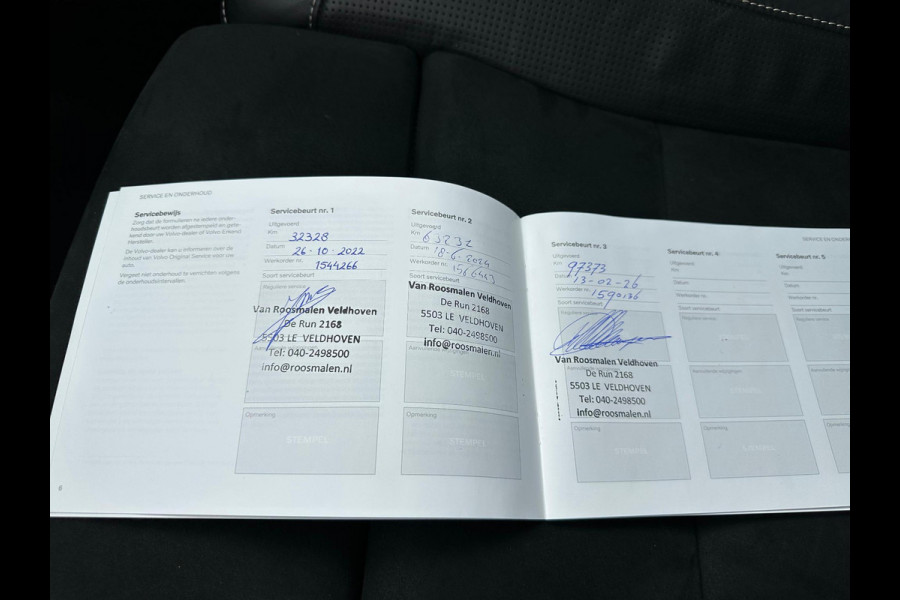 SERVICE EN ONDERHOUD
Servicebewijs
Zorg dat de formulieren na iedere onder-
houdsbeurt worden afgestempeld en gete-
kend door uw Volvo-dealer of Volvo Erkend
Hersteller.
De Volvo-dealer kan u informeren over de
inhoud van Volvo Original Service voor uw
auto.
Vergeet niet onderhoud te verrichten volgens
de onderhoudsintervallen.
6
Servicebeurt nr. 1
Uitgevoerd
Km 32328
Datum 26-10-2022
Werkorder nr. 1544266
Soort servicebeurt
Reguliere service
Van Roosmalen Veldhoven
De Run 2168
5503 LE VELDHOVEN
Tel: 040-2498500
info@roosmalen.nl
Opmerking
STEMPEL
Servicebeurt nr. 2
Uitgevoerd
Km 63232
Datum 18-6-2024
Werkorder nr.
Soort servicebeurt
Van Roosmalen Veldhoven
De Run 2168
5503 LE VELDHOVEN
Tel: 040-2498500
info@roosmalen.nl
STEMPEL
Opmerking
STEMPEL
SERVICE EN
Servicebeurt nr. 3
Uitgevoerd
Km 97373
Datum 13-02-26
Werkorder nr. 1590136
Soort servicebeurt
Van Roosmalen Veldhoven
De Run 2168
5503 LE VELDHOVEN
Tel: 040-2498500
info@roosmalen.nl
Opmerking
STEMPEL
Servicebeurt nr. 4
Uitgevoerd
Km
Datum
Werkorder nr.
Soort servicebeurt
Reguliere service
Aanvullende wijzigingen
Opmerking
STEMPEL
Servicebeurt nr. 5
Uitgevoerd
Km
Datum
Werkorder nr.
Soort servicebeurt
Reguliere service
Opmerking